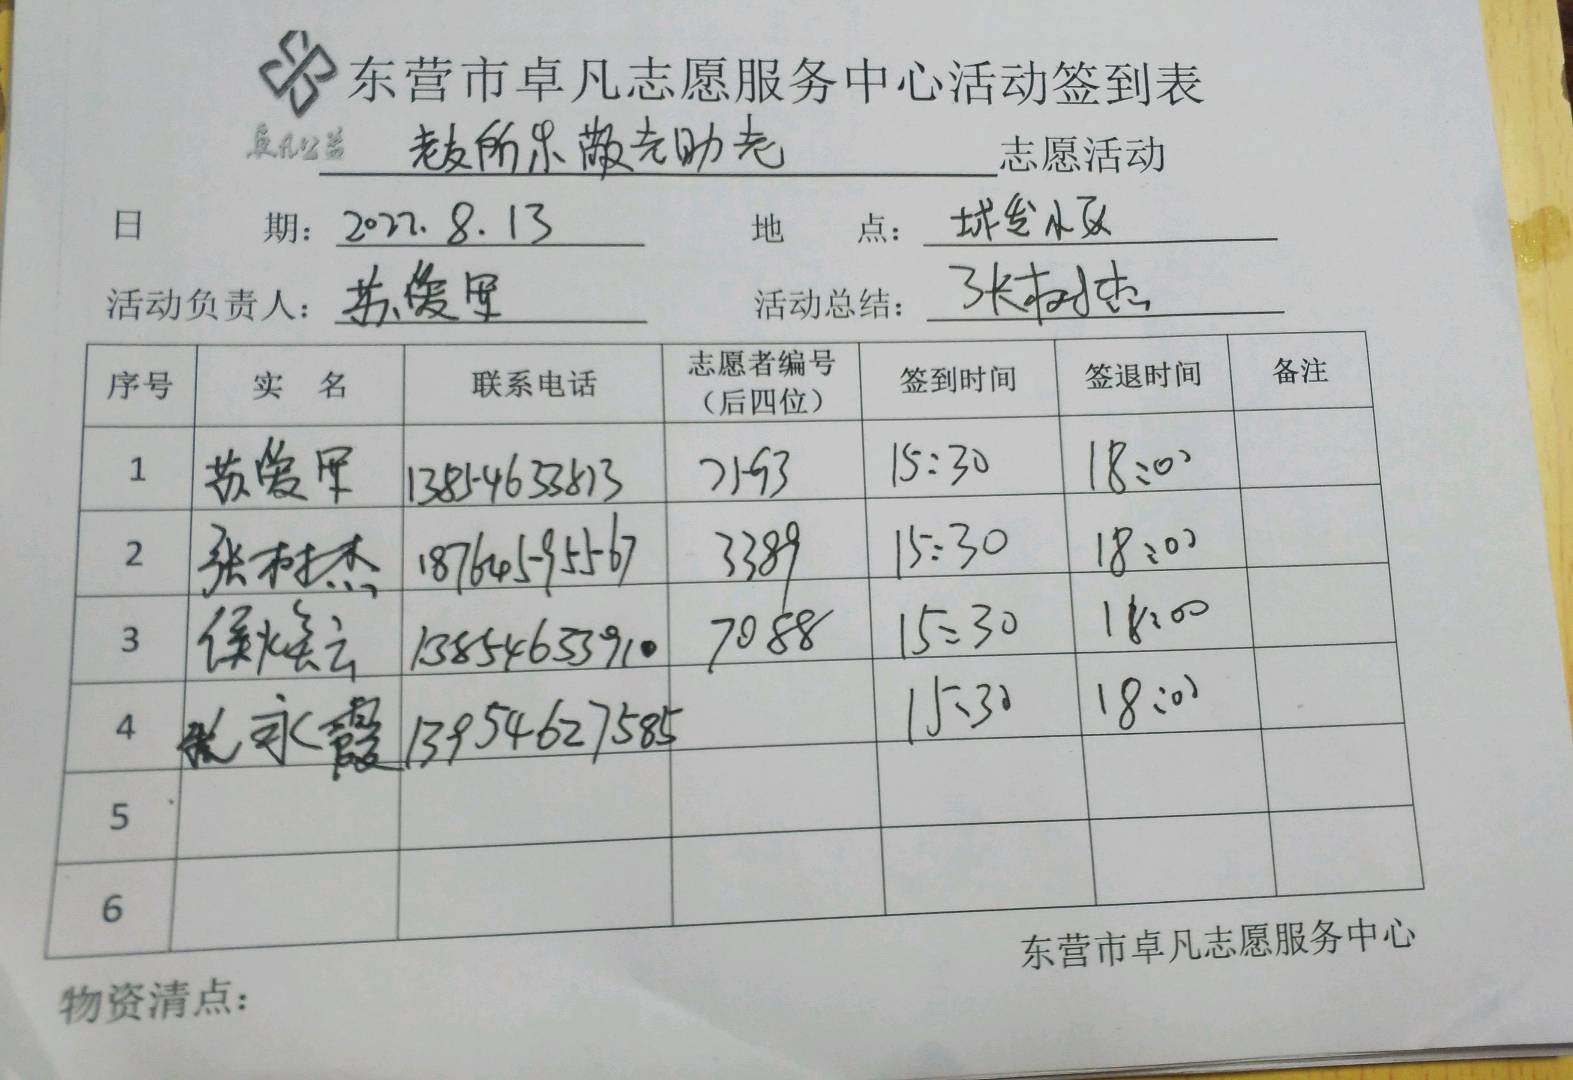 东营市卓凡志愿服务中心活动签到表
卓凡公益 老友所乐敬老助老 志愿活动
日 期: 2022.8.13 地 点: 城发小区
活动负责人: 苏爱军 活动总结: 张树杰
序号 实 名 联系电话 志愿者编号（后四位） 签到时间 签退时间 备注
1 苏爱军 13854633813 2193 15:30 18:00
2 张树杰 18764595567 3389 15:30 18:00
3 侯焕云 13854633910 7088 15:30 18:00
4 张永霞 13954627585 15:30 18:00
5
6
东营市卓凡志愿服务中心
物资清点: